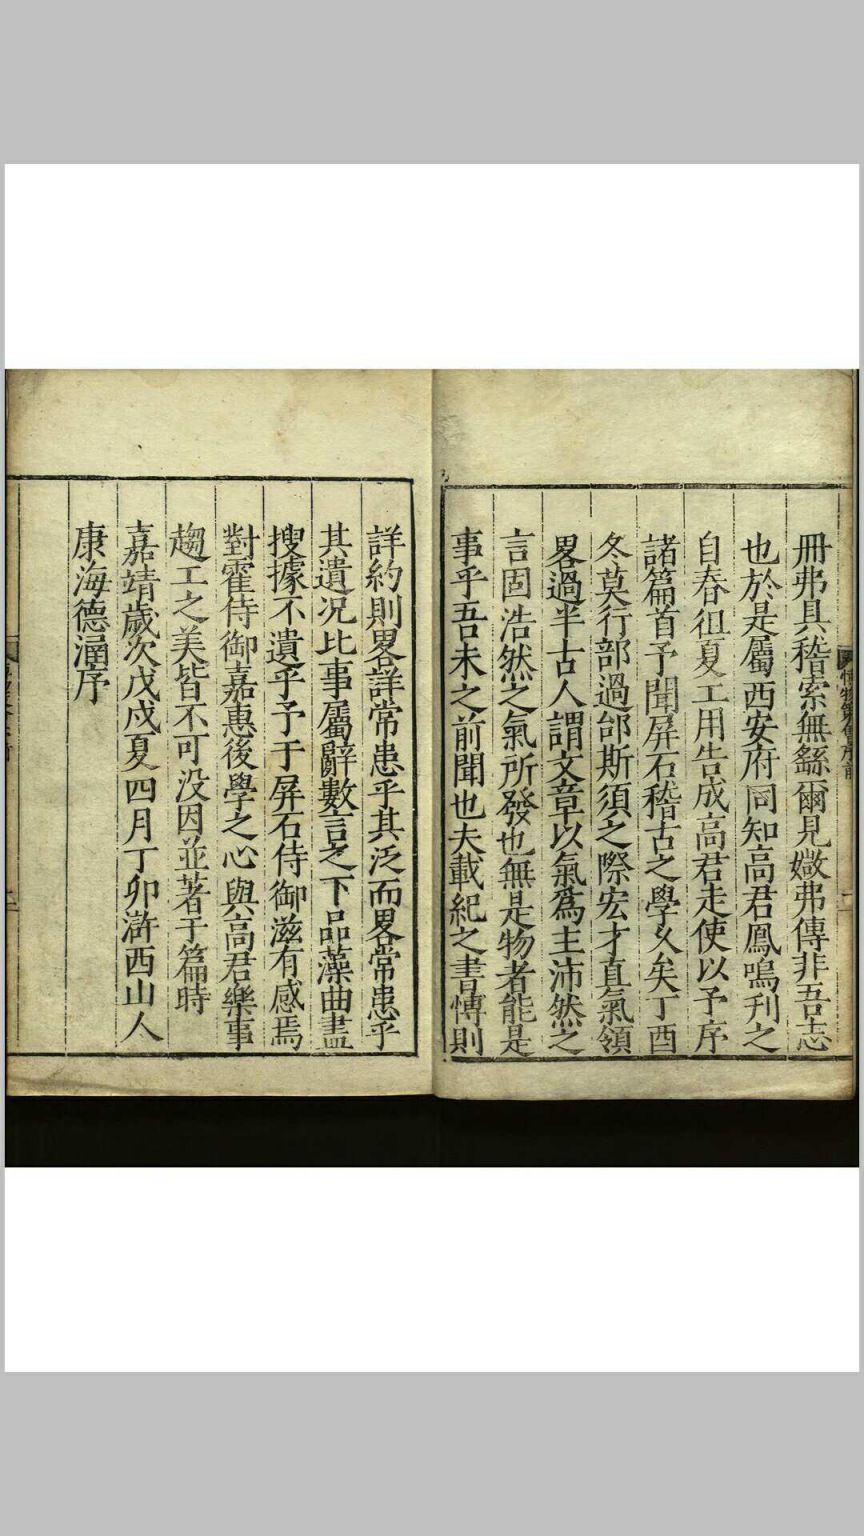 冊弗具稽索無繇爾見媺弗傳非吾志
也於是屬西安府同知高君鳳鳴刋之
自春徂夏工用告成高君走使以予序
諸篇首予聞屏石稽古之學久矣丁酉
冬莫行部過邰斯須之際宏才直氣領
畧過半古人謂文章以氣爲主沛然之
言固浩然之氣所發也無是物者能是
事乎吾未之前聞也夫載紀之書愽則
詳約則畧詳常患乎其泛而畧常患乎
其遺况比事屬辭數言之下品藻曲盡
搜據不遺乎予于屏石侍御滋有感焉
對霍侍御嘉惠後學之心與高君樂事
趨工之美皆不可没因並著于篇時
嘉靖歲次戊戍夏四月丁卯滸西山人
康海德涵序